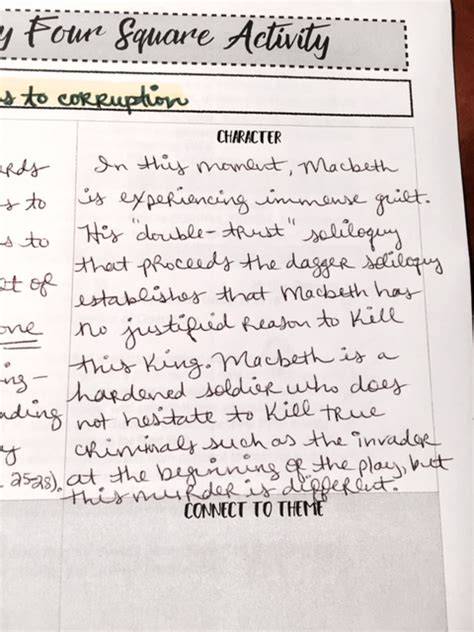 y Four Square Activity
s to corruption
CHARACTER
In this moment, Macbeth
is experiencing immense guilt.
His "double-trust" soliloquy
that proceeds the dagger soliloquy
establishes that Macbeth has
no justified reason to kill
this King. Macbeth is a
hardened soldier who does
not hesitate to kill true
criminals such as the invader
at the beginning of the play, but
this murder is different.
CONNECT TO THEME
rds
s to
s to
t of
one
ng-
ading
y
25-28).